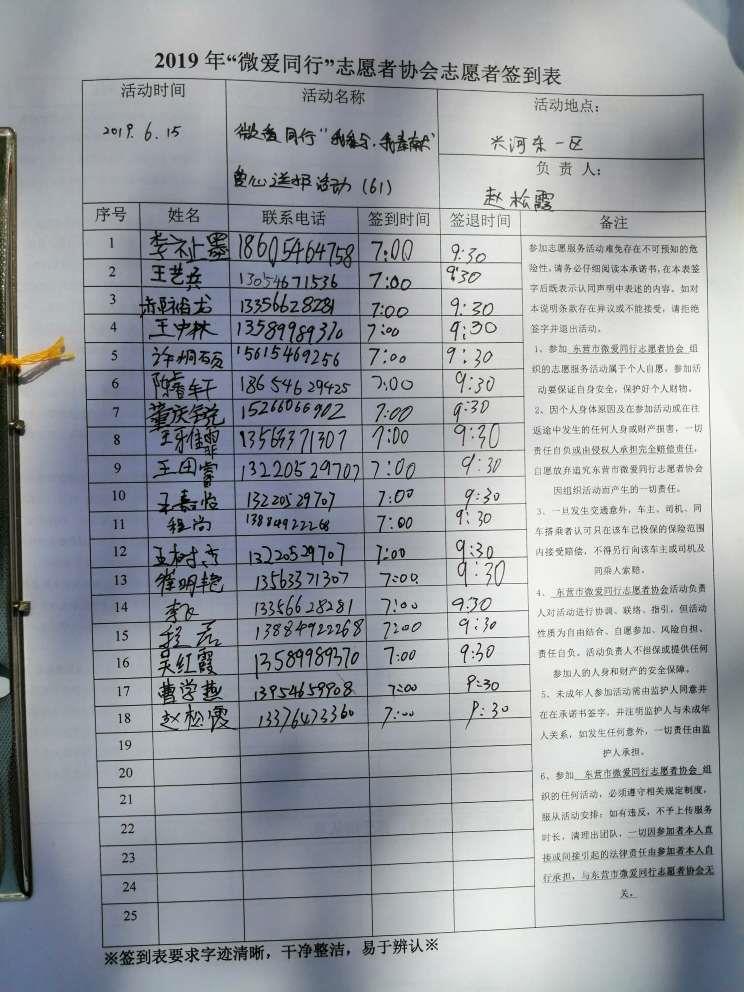 2019 年“微爱同行”志愿者协会志愿者签到表
活动时间 活动名称 活动地点：
2019. 6. 15 微爱同行“我参与，我奉献” 兴河东一区
爱心送报活动（61） 负责人：
赵松霞
序号 姓名 联系电话 签到时间 签退时间 备注
1 18605464758 7:00 9:30
2 王艺兵 13054671536 7:00 9:30
3 13356628281 7:00 9:30
4 王中林 13589989370 7:00 9:30
5 15615469256 7:00 9:30
6 18654629425 7:00 9:30
7 15266066902 7:00 9:30
8 13563371307 7:00 9:30
9 13220529707 7:00 9:30
10 王嘉怡 13220529707 7:00 9:30
11 程尚 13884922268 7:00 9:30
12 13220529707 7:00 9:30
13 崔明艳 13563371307 7:00 9:30
14 13356628281 7:00 9:30
15 13884922268 7:00 9:30
16 吴红霞 13589989370 7:00 9:30
17 曹学燕 13954659908 7:00 9:30
18 赵松霞 13376473360 7:00 9:30
19
20
21
22
23
24
25
参加志愿服务活动难免存在不可预知的危
险性，请务必仔细阅读本承诺书，在本表签
字后既表示认同声明中表述的内容。如对
本说明条款存在异议或不能接受，请拒绝
签字并退出活动。
1、参加 东营市微爱同行志愿者协会 组
织的志愿服务活动属于个人自愿，参加活
动要保证自身安全，保护好个人财物。
2、因个人身体原因及在参加活动或在往
返途中发生的任何人身或财产损害，一切
责任自负或由侵权人承担完全赔偿责任，
自愿放弃追究东营市微爱同行志愿者协会
因组织活动而产生的一切责任。
3、一旦发生交通意外，车主、司机、同
车搭乘者认可只在该车已投保的保险范围
内接受赔偿，不得另行向该车主或司机及
同乘人索赔。
4、 东营市微爱同行志愿者协会活动负责
人对活动进行协调、联络、指引，但活动
性质为自由结合、自愿参加、风险自担、
责任自负。活动负责人不担保或提供任何
参加人的人身和财产的安全保障。
5、未成年人参加活动需由监护人同意并
在在承诺书签字，并注明监护人与未成年
人关系，如发生任何意外，一切责任由监
护人承担。
6、参加 东营市微爱同行志愿者协会 组
织的任何活动，必须遵守相关规定制度，
服从活动安排；如有违反，不予上传服务
时长，清理出团队，一切因参加者本人直
接或间接引起的法律责任由参加者本人自
行承担，与东营市微爱同行志愿者协会无
关。
※签到表要求字迹清晰，干净整洁，易于辨认※